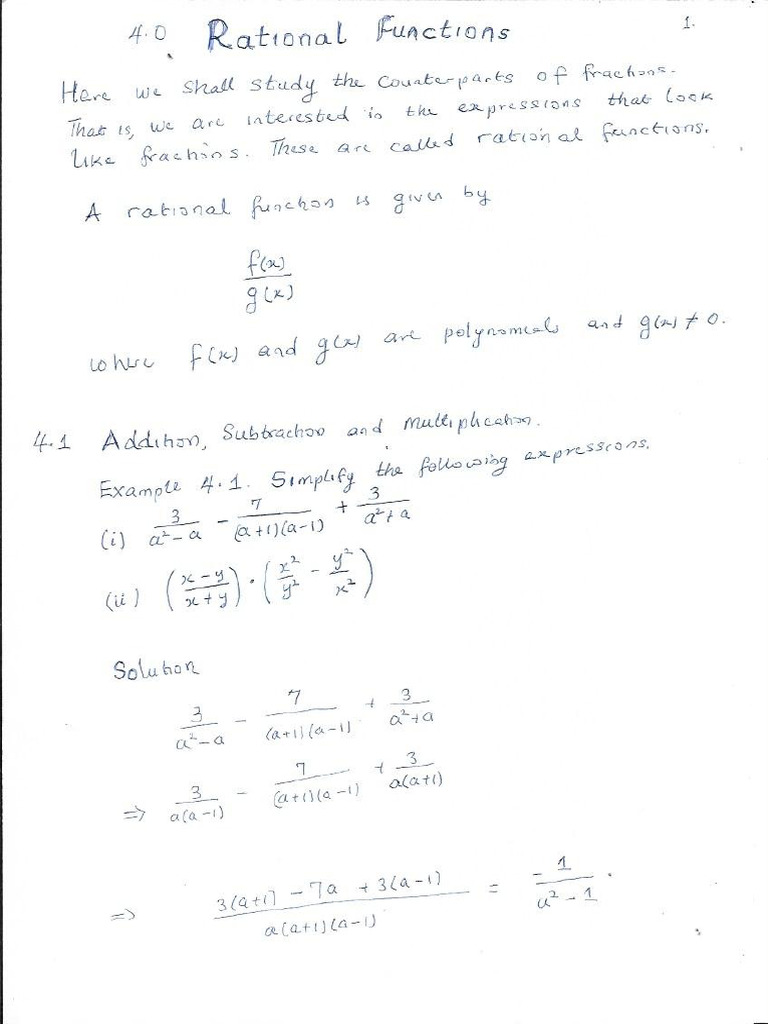 1.
4.0 Rational Functions
Here we shall study the counterparts of fractions.
That is, we are interested in the expressions that look
like fractions. These are called rational functions.
A rational function is given by
f(x)
g(x)
where f(x) and g(x) are polynomials and g(x) ≠ 0.
4.1 Addition, Subtraction and Multiplication.
Example 4.1. Simplify the following expressions.
(i) 3/(a² - a) - 7/((a+1)(a-1)) + 3/(a² + a)
(ii) ((x - y)/(x + y)) · (x²/y² - y²/x²)
Solution
3/(a² - a) - 7/((a+1)(a-1)) + 3/(a² + a)
⇒ 3/(a(a-1)) - 7/((a+1)(a-1)) + 3/(a(a+1))
⇒ (3(a+1) - 7a + 3(a-1))/(a(a+1)(a-1)) = -1/(a² - 1).